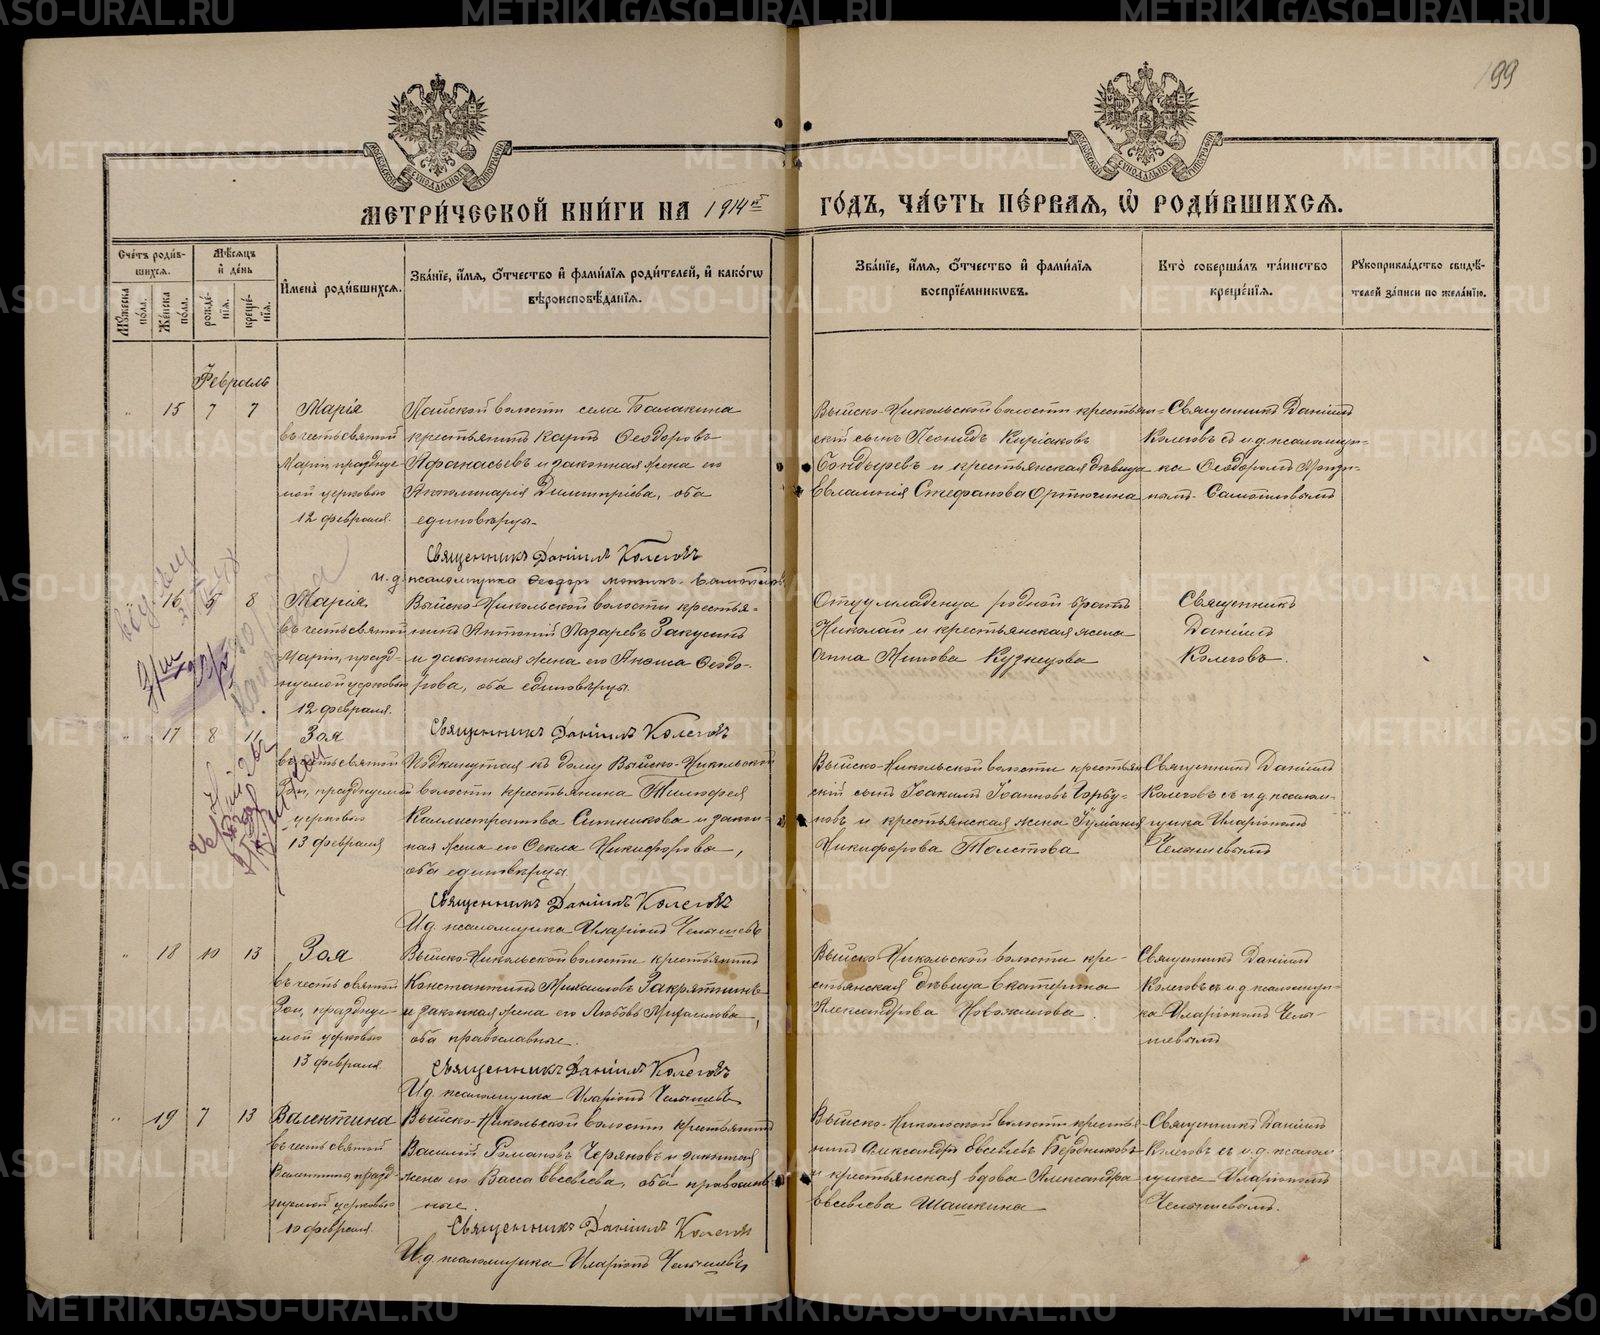 199
МЕТРИ́ЧЕСКОЙ КНИ́ГИ НА 1914й ГО́ДЪ, ЧА́СТЬ ПЕ́РВАЯ, Ѡ҆ РОДИ́ВШИХСЯ.
Сче́тъ роди́вшихся.
Му́жеска по́ла.
Же́нска по́ла.
Мѣ́сяцъ и҆ де́нь
рожде́нїя.
креще́нїя.
И҆мена̀ роди́вшихся.
Зва́нїе, и҆́мя, ѻ҆́тчество и҆ фами́лїя роди́телей, и҆ како́гѡ
вѣроисповѣ́данїя.
Зва́нїе, и҆́мя, ѻ҆́тчество и҆ фами́лїя
воспрїе́мниковъ.
Кто̀ соверша́лъ та́инство
креще́нїя.
Рукоприкла́дство свидѣ́-
телей за́писи по жела́нїю.
Февраль
" 15 7 7
Марія
въ честь святой
Маріи, праздnуе-
мой церковью
12 февраля.
Пайской волости села Балакина
крестьянинъ Карпъ Ѳеодоровъ
Афанасьевъ и законная жена его
Апполинарія Димитріева, оба
единовѣрцы.
Священникъ Даніилъ Колеговъ
И. д. псаломщика Ѳеодоръ
Выйско-Никольской волости крестьян-
скій сынъ Леонидъ Киріаковъ
Бондыревъ и крестьянская дѣвица
Евлампія Стефанова Ортюгина
Священникъ Даніилъ
Колеговъ съ и.д. псаломщи-
ка Ѳеодоромъ
16 5 8
Марія
въ честь святой
Маріи, празд-
нуемой церковью
12 февраля.
Выйско-Никольской волости крестья-
нинъ Антоній Лазаревъ Закусинъ
и законная жена его Ѳеодо-
рова, оба единовѣрцы.
Священникъ Даніилъ Колеговъ
Отцу младенца родной братъ
Николай и крестьянская жена
Анна Минова Кузнецова
Священникъ
Даніилъ
Колеговъ.
" 17 8 11
Зоя
въ честь святой
Зои, празднуемой
церковью
13 февраля
Подкинутая къ дому Выйско-Никольской
волости крестьянина Тимофея
Каллистратова Ситникова и закон-
ная жена его Ѳекла Никифорова,
оба единовѣрцы.
Священникъ Даніилъ Колеговъ
И.д. псаломщика Иларіонъ Челышевъ
Выйско-Никольской волости крестьян
скій сынъ Іоакимъ Іоанновъ Горбу-
новъ и крестьянская жена Іуліанія
Никифорова Толстова
Священникъ Даніилъ
Колеговъ съ и.д. псалом-
щика Иларіономъ
Челышевымъ
" 18 10 13
Зоя
въ честь святой
Зои, праздnуе-
мой церковью
13 февраля.
Выйско-Никольской волости крестьянинъ
Константинъ Михаиловъ Закрятинъ
и законная жена его Любовь Михаилова,
оба православные.
Священникъ Даніилъ Колеговъ
И.д. псаломщика Иларіонъ Челышевъ
Выйско-Никольской волости кре-
стьянская дѣвица Екатерина
Александрова Новожилова.
Священникъ Даніилъ
Колеговъ съ и.д. псаломщи-
ка Иларіономъ Челы-
шевымъ
" 19 7 13
Валентина
въ честь святой
Валентины, празд-
нуемой церковью
10 февраля.
Выйско-Никольской волости крестьянинъ
Василій Романовъ Черяковъ и законная
жена его Васса Евсевіева, оба православ-
ные.
Священникъ Даніилъ Колеговъ
И.д. псаломщика Иларіонъ Челышевъ
Выйско-Никольской волости крестья-
нинъ Александръ Евсевіевъ Бердниковъ
и крестьянская вдова Александра
Евсевіева Шашкина
Священникъ Даніилъ
Колеговъ съ и.д. псалом-
щика Иларіономъ
Челышевымъ.
METRIKI.GASO-URAL.RU